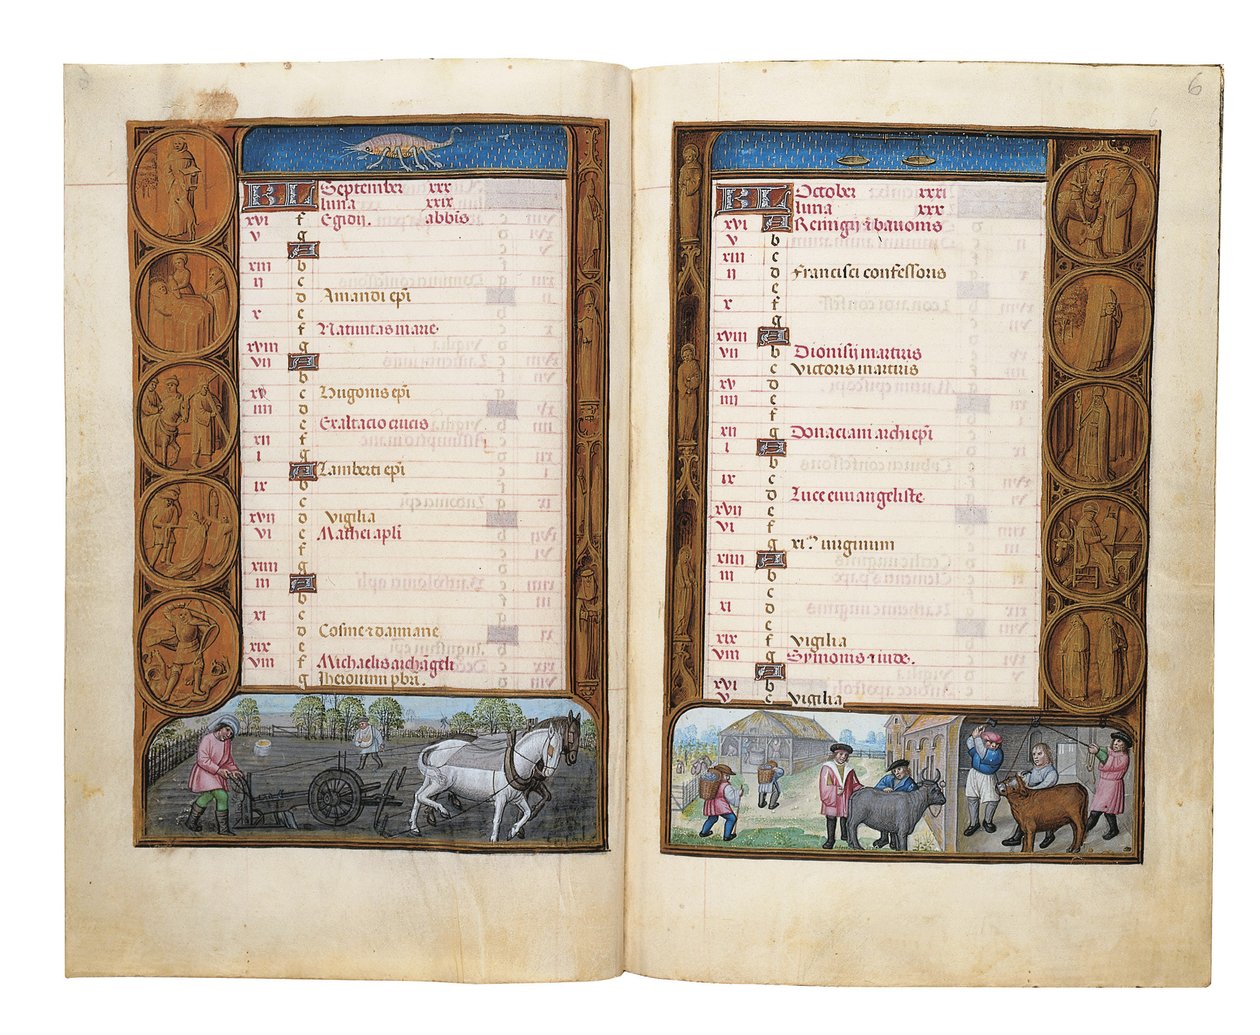 KL September xxx
luna xxix
xvi f Egidii. abbis
v g
A
xiii b
ii c
d Amandi epi
x e
f Nativitas marie
xviii g
vii A
b
xv c Hugonis epi
iiii d
e Exaltacio crucis
xii f
i g
A Lamberti epi
ix b
c
xvii d Vigilia
vi e Mathei apli
f
xiiii g
iii A
b
xi c
d Cosme et damiane
xix e
viii f Michaelis archageli
g Jheronimi pbri.
6
KL October xxxi
luna xxx
xvi A Remigii et bavonis
v b
xiii c
ii d Francisci confessoris
e
x f
g
xviii A
vii b Dionisii martiris
c Victoris martiris
xv d
iiii e
f
xii g Donaciani archiepi
i A
b
ix c
d Luce euuangeliste
xvii e
vi f
g xi.m virginum
xiiii A
iii b
c
xi d
e
xix f Vigilia
viii g Symonis et iude.
A
xvi b
v c Vigilia